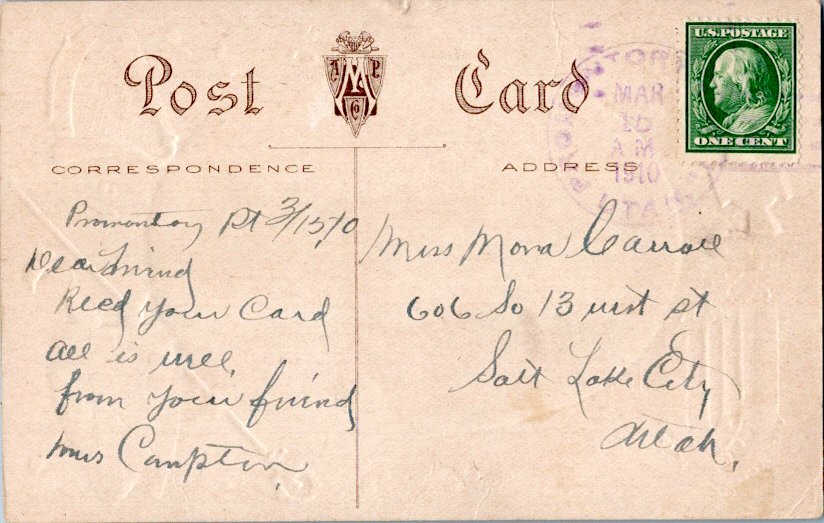 Post Card
A M P Co
U.S. POSTAGE
ONE CENT
PROMONTORY
MAR
A.M.
1910
UTAH
CORRESPONDENCE
ADDRESS
Promontory Pt 3/15/0
Dear Friend
Recd your Card
all is well.
from your friend
Mrs Compton
Miss Mona Carroll
606 So 13 west st
Salt Lake City
Utah.